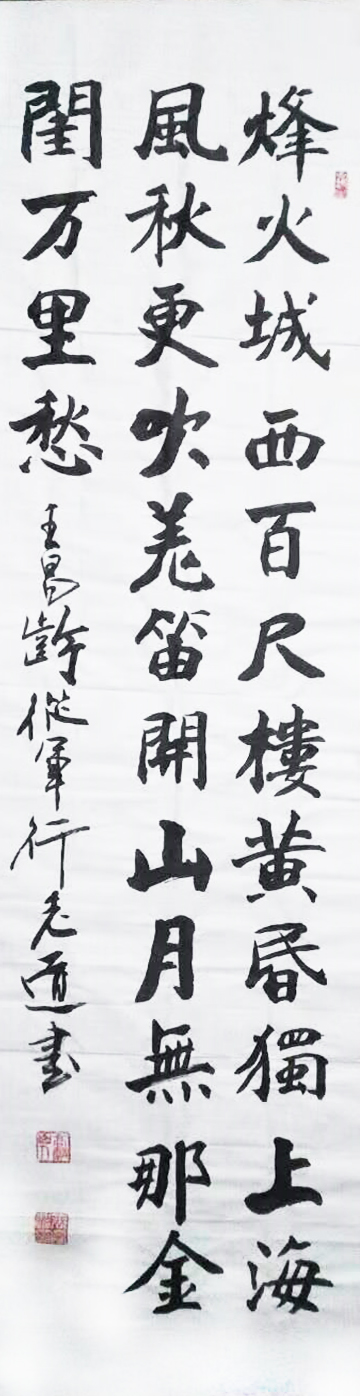 烽火城西百尺樓黄昏獨上海
風秋更吹羌笛開山月無那金
閨万里愁 王昌齡從軍行老道書